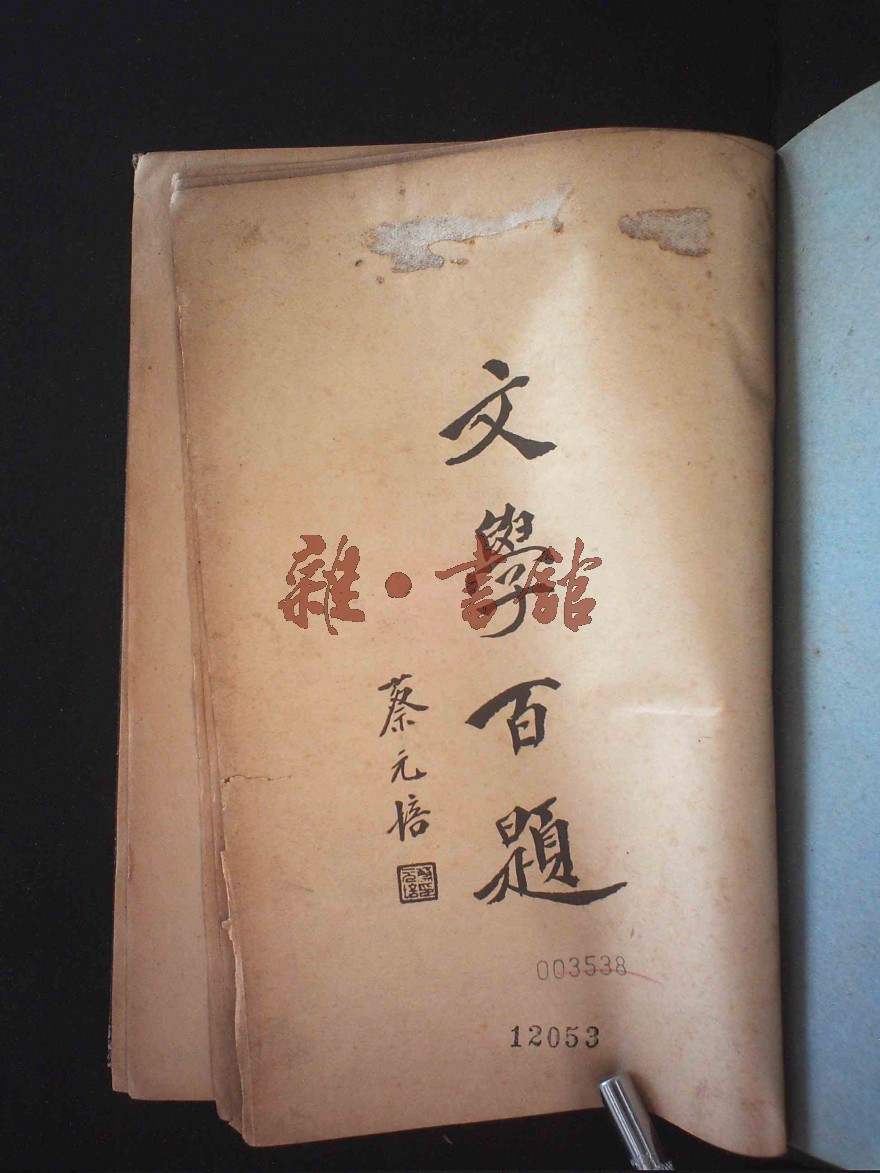 文學百題
蔡元培
雜·書館
003538
12053